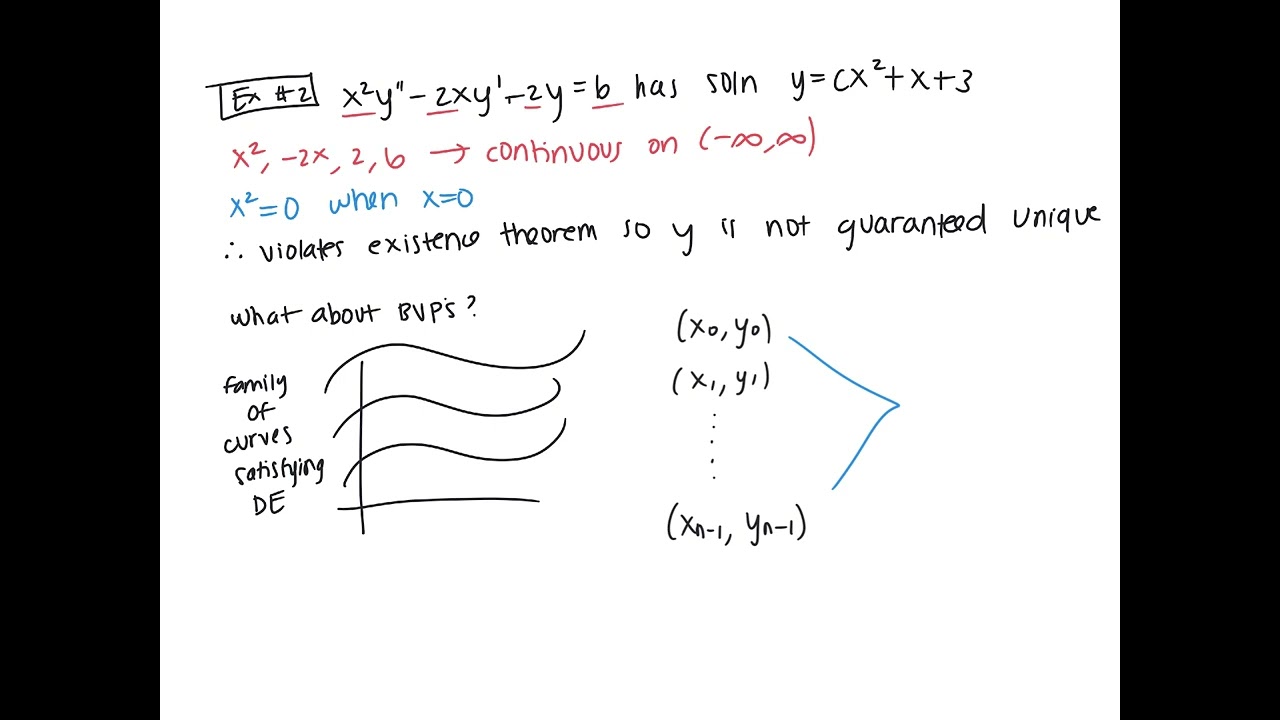 Ex #2 x²y" - 2xy' - 2y = 6 has soln y = cx² + x + 3
x², -2x, 2, 6 → continuous on (-∞, ∞)
x² = 0 when x=0
∴ violates existence theorem so y is not guaranteed unique
what about BVP's?
family
of
curves
satisfying
DE
(x₀, y₀)
(x₁, y₁)
(xₙ₋₁, yₙ₋₁)